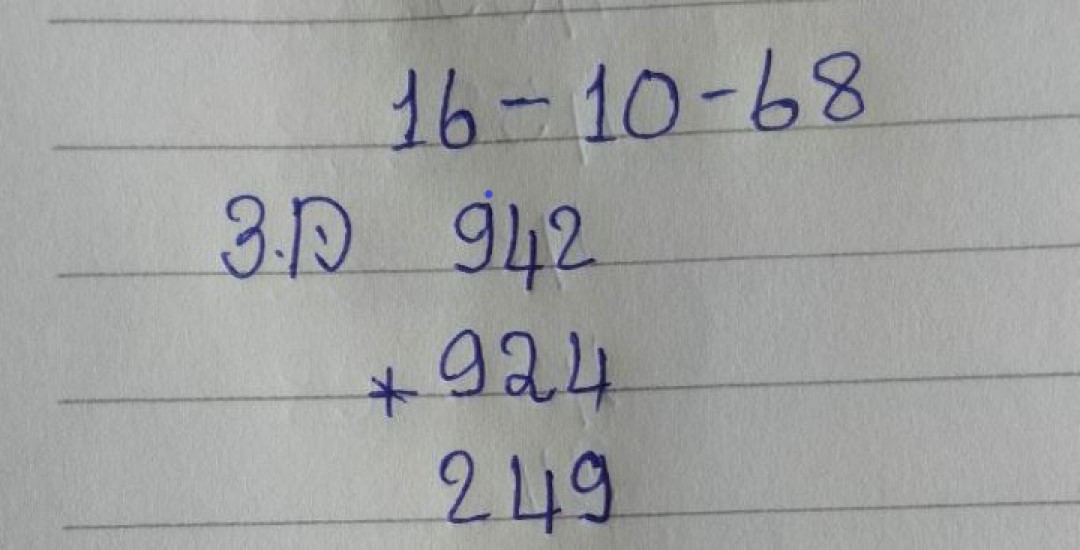 16-10-68
3.D 942
*924
249